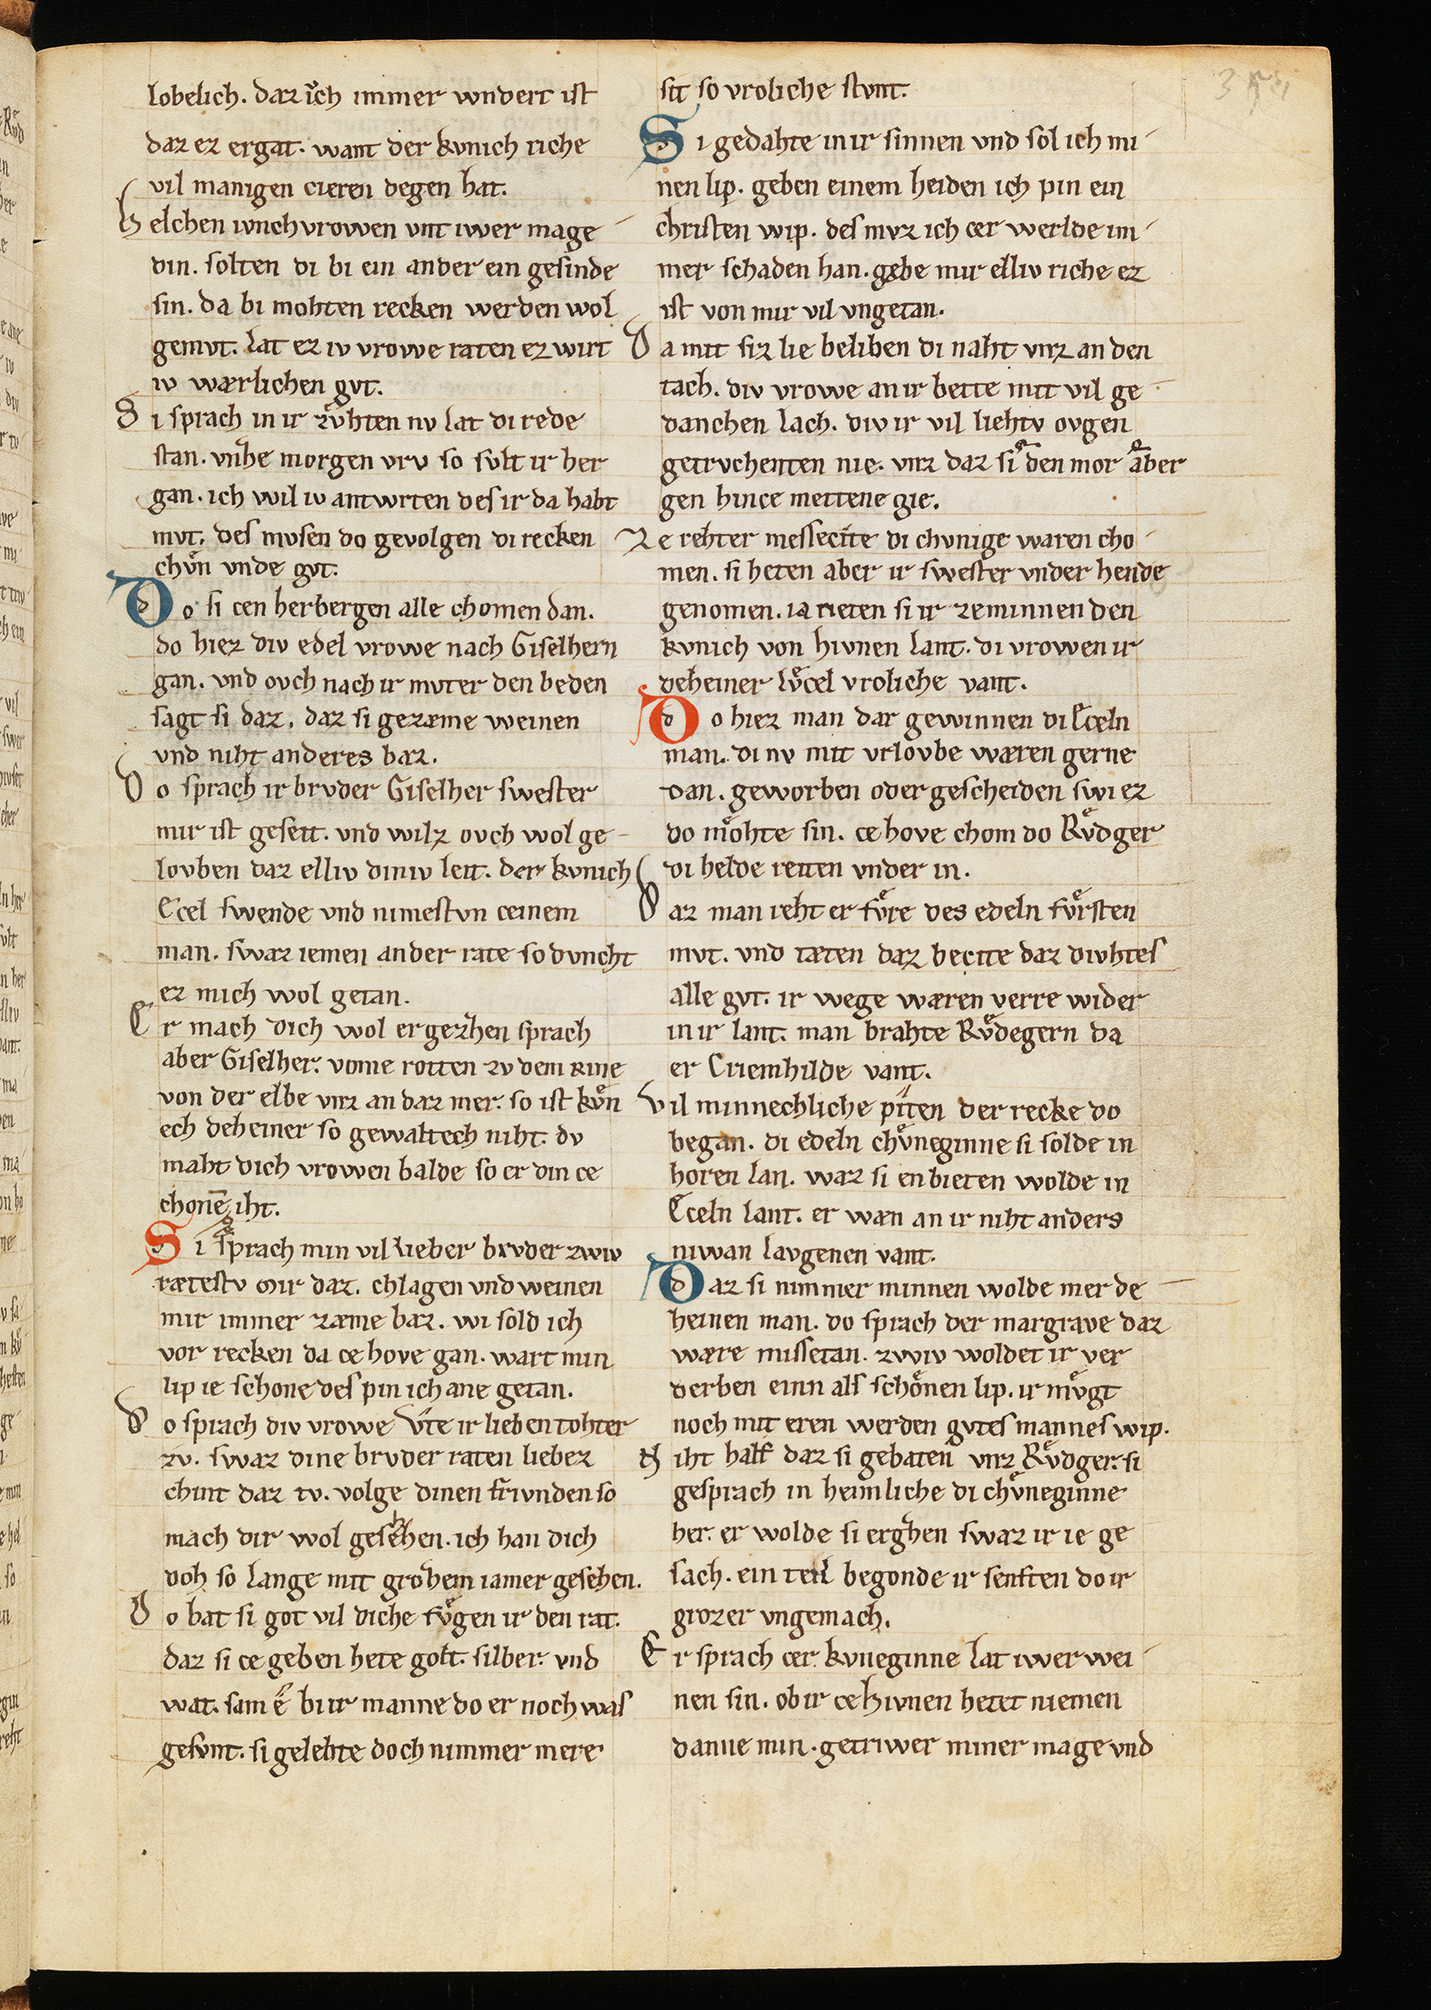 lobelich. daz ivch immer wndert ist
daz ez ergat. want der kvnich riche
vil manigen cieren degen hat.
Helchen ivnchvrowen vnt iwer mage
din. solten di bi ein ander ein gesinde
sin. da bi mohten recken werden wol
gemvt. lat ez iv vrowe raten ez wirt
iv wærlichen gvt.
Si sprach in ir zvͦhten nv lat di rede
stan. vnhe morgen vrv so svlt ir her
gan. ich wil iv antwrten des ir da habt
mvt. des mvsen do gevolgen di recken
chvͤn vnde gvt.
Do si cen herbergen alle chomen dan.
do hiez div edel vrowe nach Giselhern
gan. vnd ovch nach ir mvter den beden
sagt si daz. daz si gezæme weinen
vnd niht anderes baz.
Do sprach ir brvder Giselher swester
mir ist geseit. vnd wilz ovch wol ge-
lovben daz elliv diniv leit. der kvnich
Ecel swende vnd nimestvn ceinem
man. swaz iemen ander rate so dvncht
ez mich wol getan.
Er mach dich wol ergezhen sprach
aber Giselher. vome rotten zv dem Rine
von der elbe vnz an daz mer. so ist kvͤn
ech deheiner so gewaltech niht. dv
maht dich vrowen balde so er din ce
chonē iht.
Si sprach min vil lieber brvder zwiv
rætestv mir daz. chlagen vnd weinen
mir immer zæme baz. wi sold ich
vor recken da ce hove gan. wart min
lip ie schone des pin ich ane getan.
Do sprach div vrowe Vͦte ir lieben tohter
zv. swaz dine brvder raten liebez
chint daz tv. volge dinen frivnden so
mach dir wol gesehen. ich han dich
doh so lange mit grozem iamer gesehen.
Do bat si got vil diche fvͤgen ir den rat.
daz si ce geben hete golt. silber. vnd
wat. sam ê bi ir manne do er noch was
gesvnt. si gelebte doch nimmer mere
sit so vroliche stvnt.
Si gedahte in ir sinnen vnd sol ich mi-
nen lip. geben einem heiden ich pin ein
christen wip. des mvz ich cer werlde im-
mer schaden han. gebe mir elliv riche ez
ist von mir vil vngetan.
Da mit siz lie beliben di naht vnz an den
tach. div vrowe an ir bette mit vil ge-
danchen lach. div ir vil liehtv ovgen
getrvchenten nie. vnz daz si den mor aber
gen hince mettene gie.
Ze rehter messecite di chvnige waren cho-
men. si heten aber ir swester vnder hende
genomen. ia rieten si ir ze minnen den
kvnich von hivnen lant. di vrowen ir
deheiner lvͤcel vroliche vant.
Do hiez man dar gewinnen di Eceln
man. di nv mit vrlovbe wæren gerne
dan. geworben oder gescheiden swi ez
do mohte sin. ce hove chom do Rvͤdger
di helde reiten vnder in.
Daz man reht erfvͤre des edeln fvͤrsten
mvt. vnd tæten daz becite daz divhtes
alle gvt. ir wege wæren verre wider
in ir lant. man brahte Rvͤdegern da
er Criemhilde vant.
Vil minnechliche piten der recke do
began. di edeln chvͤneginne si solde in
horen lan. waz si enbieten wolde in
Eceln lant. er wæn an ir niht anders
niwan lavgenen vant.
Daz si nimmer minnen wolde mer de-
heinen man. do sprach der margrave daz
wære missetan. zwiv woldet ir ver
derben einn als schonen lip. ir mvͤgt
noch mit eren werden gvtes mannes wip.
Niht half daz si gebaten vnz Rvͤdger. si
gesprach in heimliche di chvneginne
her. er wolde si erghen swaz ir ie ge
sach. ein teil begonde ir senften do ir
grozer vngemach.
Er sprach cer kvneginne lat iwer wei-
nen sin. ob ir ce hivnen hetet niemen
danne min. getriwer miner mage vnd